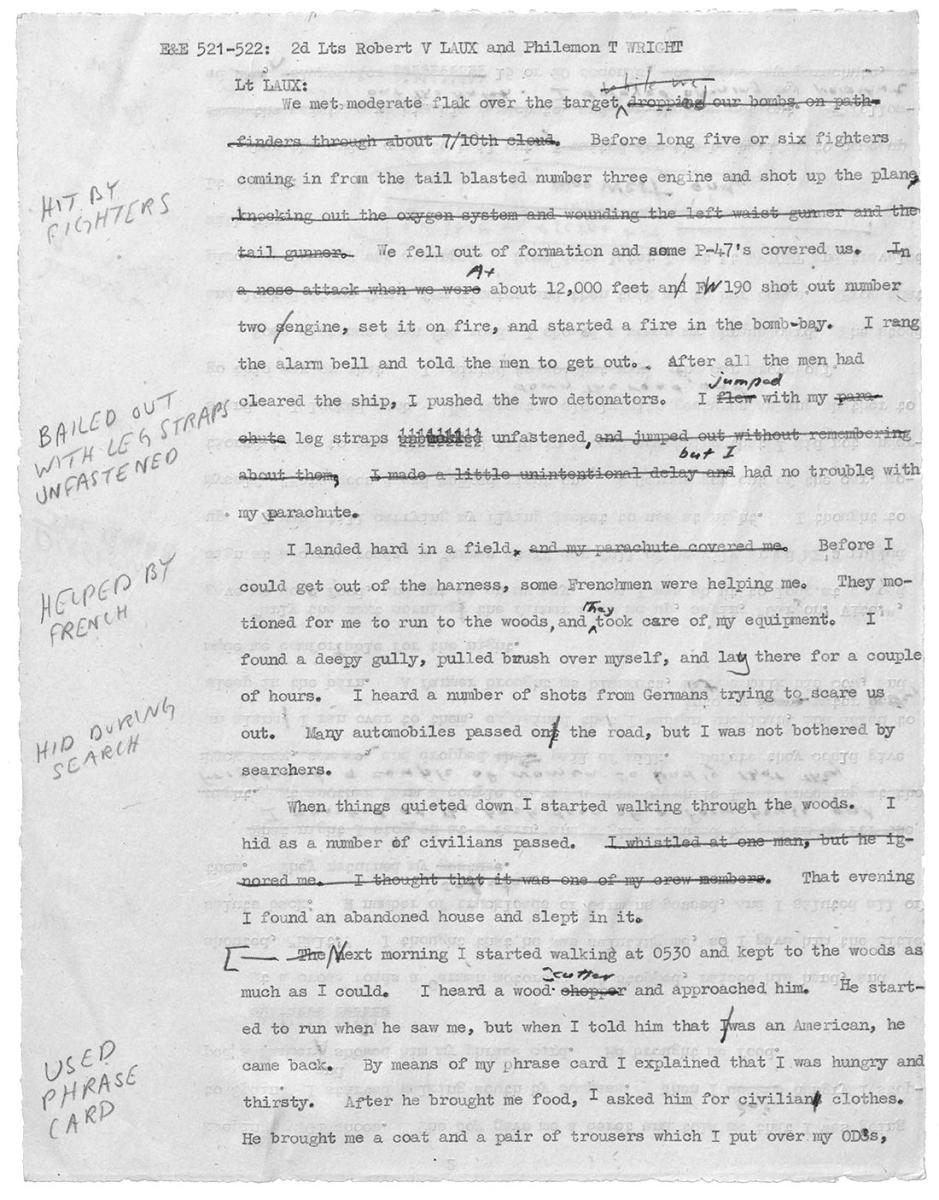 E&E 521-522: 2d Lts Robert V LAUX and Philemon T WRIGHT
Lt LAUX:
We met moderate flak over the target, dropping our bombs on path-
finders through about 7/10th cloud. Before long five or six fighters
coming in from the tail blasted number three engine and shot up the plane,
HIT BY
FIGHTERS
knocking out the oxygen system and wounding the left waist gunner and the
tail gunner. We fell out of formation and some P-47's covered us. In
At
a nose attack when we were about 12,000 feet and FW 190 shot out number
two engine, set it on fire, and started a fire in the bomb-bay. I rang
the alarm bell and told the men to get out. After all the men had
jumped
cleared the ship, I pushed the two detonators. I flew with my para-
BAILED OUT
WITH LEG STRAPS
UNFASTENED
chute leg straps unfastened, and jumped out without remembering
but I
about them, I made a little unintentional delay and had no trouble with
my parachute.
I landed hard in a field, and my parachute covered me. Before I
HELPED BY
FRENCH
could get out of the harness, some Frenchmen were helping me. They mo-
they
tioned for me to run to the woods, and took care of my equipment. I
found a deepy gully, pulled brush over myself, and lay there for a couple
of hours. I heard a number of shots from Germans trying to scare us
HID DURING
SEARCH
out. Many automobiles passed on the road, but I was not bothered by
searchers.
When things quieted down I started walking through the woods. I
hid as a number of civilians passed. I whistled at one man, but he ig-
nored me. I thought that it was one of my crew members. That evening
I found an abandoned house and slept in it.
The Next morning I started walking at 0530 and kept to the woods as
cutter
much as I could. I heard a wood chopper and approached him. He start-
ed to run when he saw me, but when I told him that I was an American, he
USED
PHRASE
CARD
came back. By means of my phrase card I explained that I was hungry and
thirsty. After he brought me food, I asked him for civilian clothes.
He brought me a coat and a pair of trousers which I put over my ODs,